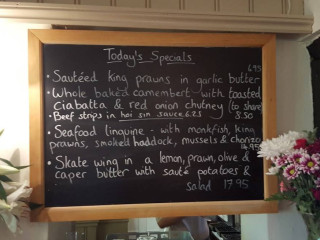 Today's Specials
6.95
• Sautéed king prawns in garlic butter
• Whole baked camembert - with toasted
ciabatta & red onion chutney (to share)
• Beef strips in hoi sin sauce 6.25 8.50
• Seafood linguine - with monkfish, king
prawns, smoked haddock, mussels & chorizo
14.95
• Skate wing in a lemon, prawn, olive &
caper butter with sauté potatoes &
salad 17.95